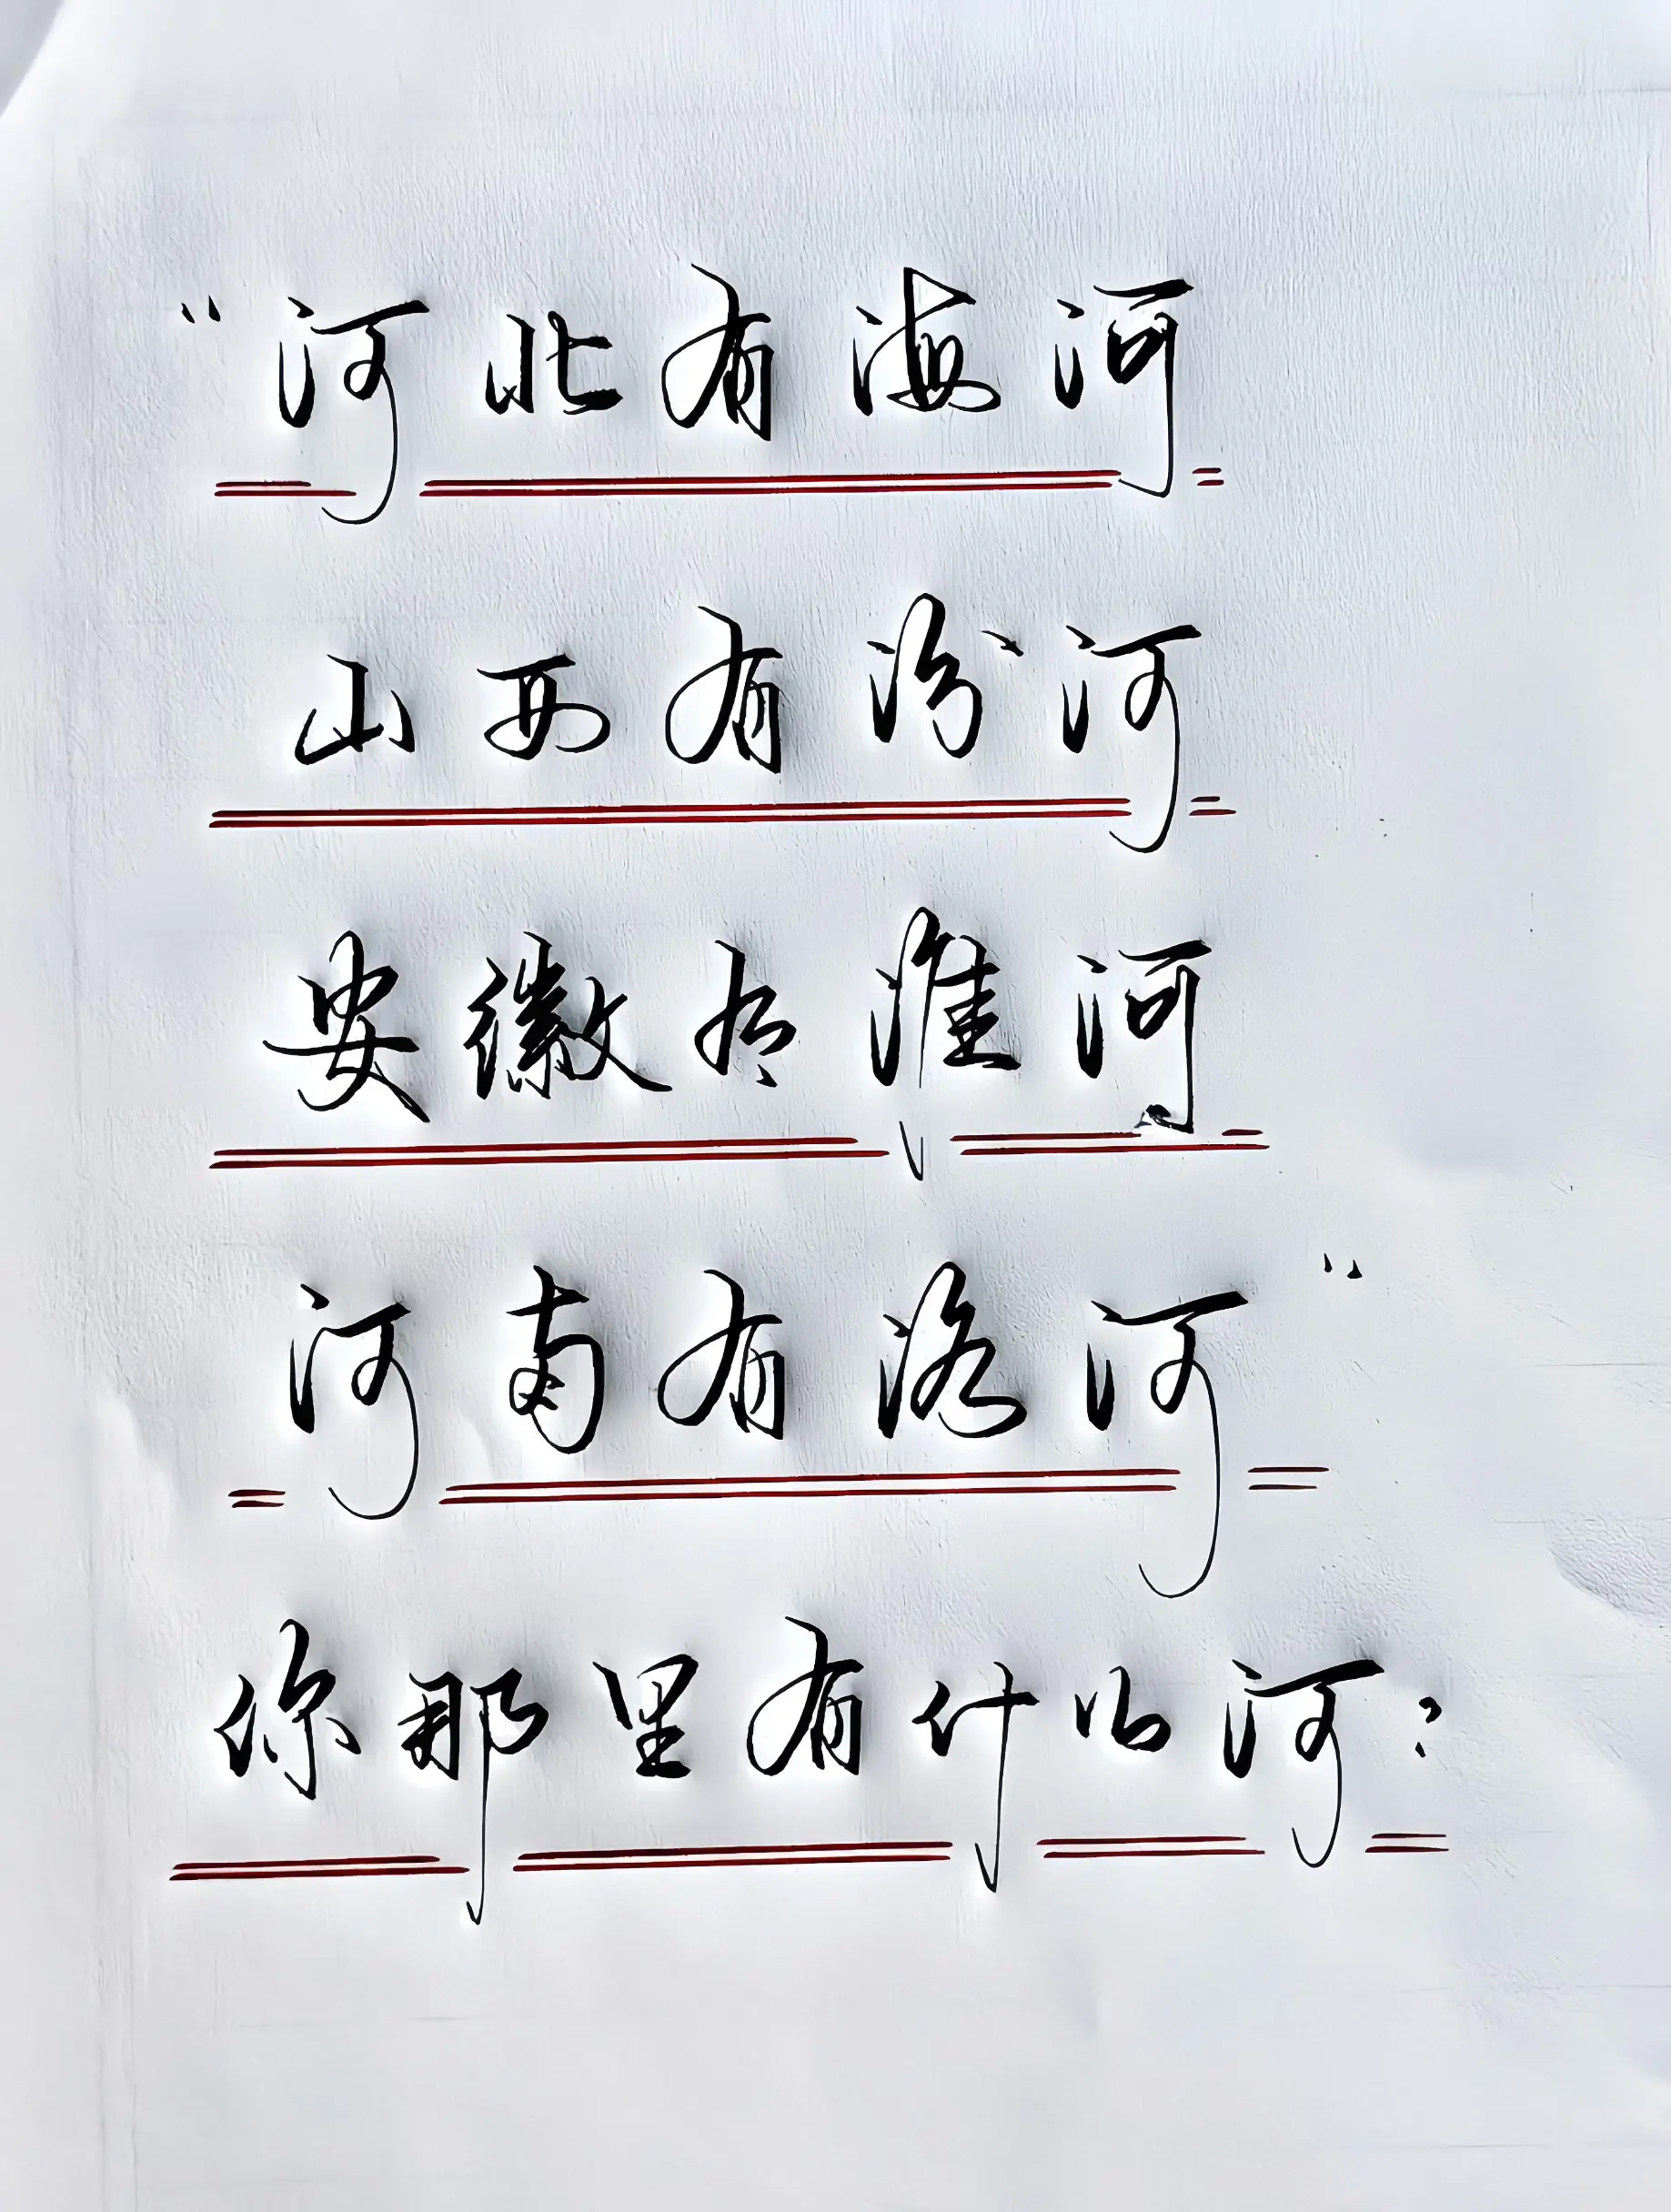 “河北有海河
山西有汾河
安徽有淮河
河南有洛河”
你那里有什么河？